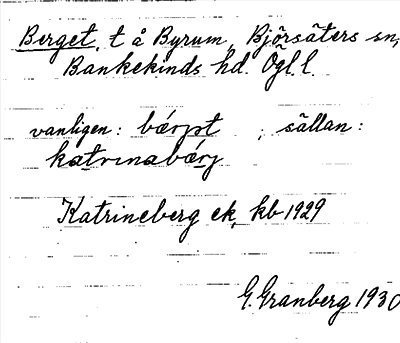 Berget, t å Byrum, Björsäters sn,
Bankekinds hd. Ögl. l.
vanligen: bærjət ; sällan:
katrinabærj
Katrineberg ek, kb 1929
G. Granberg 1930